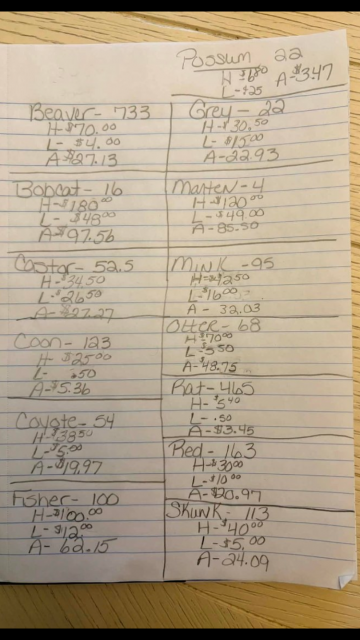 Possum 22
H $6.50 A-$3.47
L-$.25
Beaver- 733
H-$70.00
L- $4.00
A-$27.13
Bobcat- 16
H- $180.00
L- $48.00
A-$97.56
Castor- 52.5
H-$34.50
L-$26.50
A-$27.27
Coon- 123
H- $25.00
L- .50
A-$5.36
Coyote- 54
H-$33.50
L-$5.00
A-$19.97
Fisher- 100
H-$100.00
L-$12.00
A- 62.15
Grey- 22
H-$30.50
L-$15.00
A-22.93
Marten-4
H-$120.00
L-$49.00
A- 85.50
Mink-95
H-$42.50
L-$16.00
A- 32.03
Otter- 68
H-$70.00
L-$5.50
A-$48.75
Rat-465
H-$5.40
L- .50
A-$3.45
Red- 163
H-$30.00
L-$10.00
A-$20.97
Skunk- 113
H-$40.00
L-$5.00
A-24.09